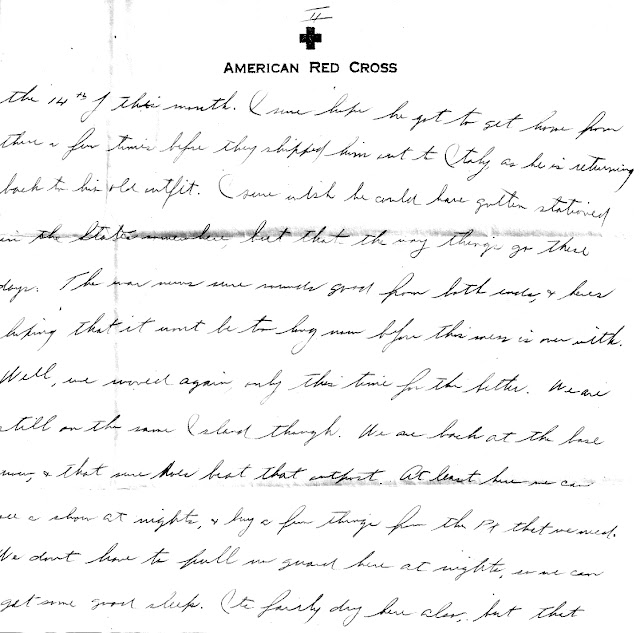 II
AMERICAN RED CROSS
the 14th of this month. I sure hope he got to get home from
there a few times before they shipped him out to Italy as he is returning
back to his old outfit. I sure wish he could have gotten stationed
in the States somewhere, but that the way things go these
days. The war news sure sounds good from both ends, & heres
hoping that it wont be to long now before this mess is over with.
Well, we moved again, only this time for the better. We are
still on the same Island though. We are back at the base
now, & that sure does beat that outpost. At least here we can
see a show at nights, & buy a few things from the PX that we need.
We dont have to pull no guard here at nights, so we can
get some good sleep. Its fairly dry here also, but that